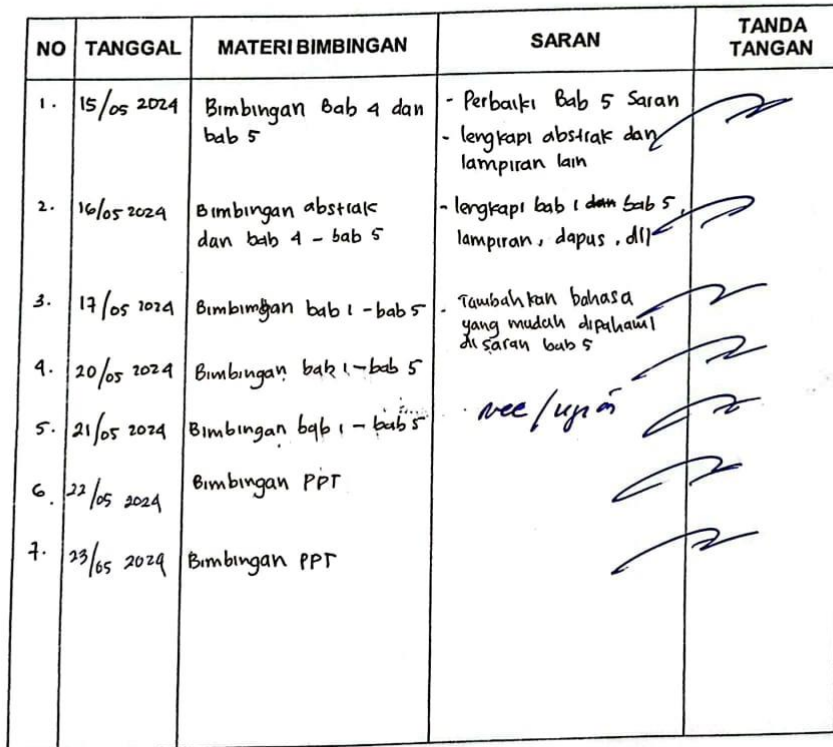 NO TANGGAL MATERI BIMBINGAN SARAN TANDA TANGAN
1. 15/05 2024 Bimbingan Bab 4 dan bab 5
- Perbaiki Bab 5 Saran
- lengkapi abstrak dan lampiran lain
2. 16/05 2024 Bimbingan abstrak dan bab 4 - bab 5
- lengkapi bab 1 dan bab 5, lampiran, dapus, dll
3. 17/05 2024 Bimbimgan bab 1 - bab 5
- Tambahkan bahasa yang mudah dipahami di saran bab 5
4. 20/05 2024 Bimbingan bab 1 - bab 5
5. 21/05 2024 Bimbingan bab 1 - bab 5
6. 22/05 2024 Bimbingan PPT
7. 23/05 2024 Bimbingan PPT